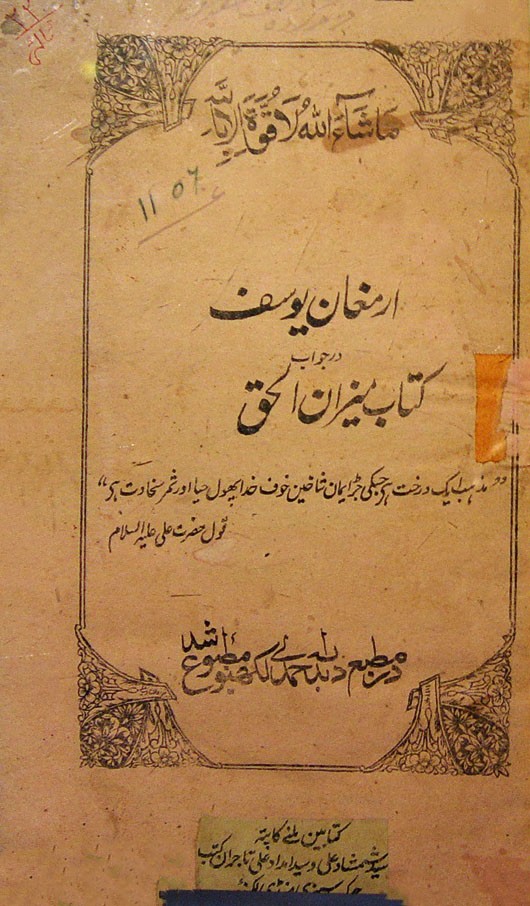 ما شآء الله لا قوة الا بالله
11 06
ارمغان یوسف
در جواب
کتاب میزان الحق
"مذہب ایک درخت ہر جسکی جڑ ایمان شاخین خوف خدا پھول حیا اور ثمر سخادت ہر"
قول حضرت علی علیہ السلام
در مطبع دبدبہ احمدی لکھنؤ مطبوع شد
کتابین ملنے کا پتہ
سید شمشاد علی و سید امداد علی تاجران کتب